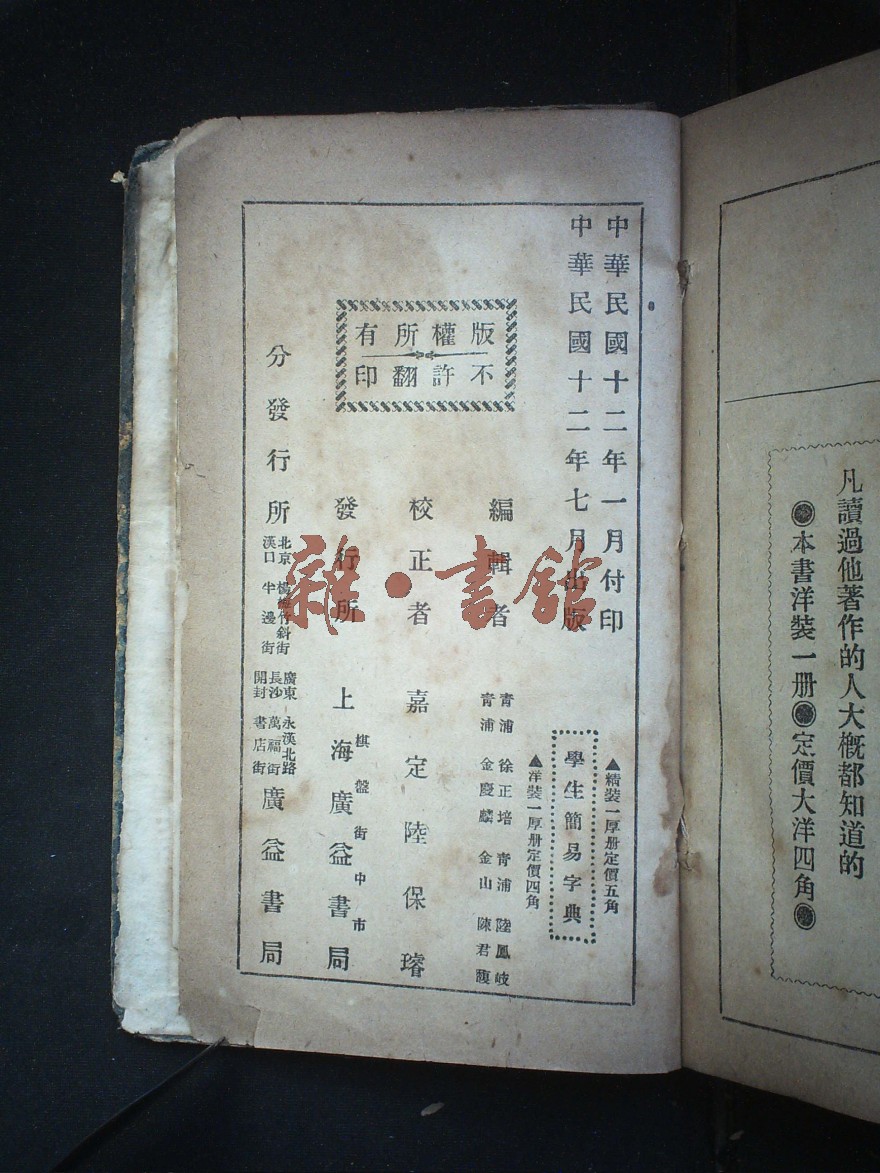 凡讀過他著作的人大概都知道的
●本書洋裝一册●定價大洋四角●
中華民國十二年一月付印
中華民國十二年七月出版
▲精裝一厚册定價五角
學生簡易字典
▲洋裝一厚册定價四角
版權所有
不許翻印
編輯者
青浦 徐正培 青浦 陸鳳岐
青浦 金慶麟 金山 陳君馥
校正者 嘉定陸保璿
發行所 上海棋盤街中市廣益書局
分發行所
北京 楊梅竹斜街
漢口 半邊街
廣東 永漢北路
長沙 萬福街
開封 書店街
廣益書局
雜·書舘